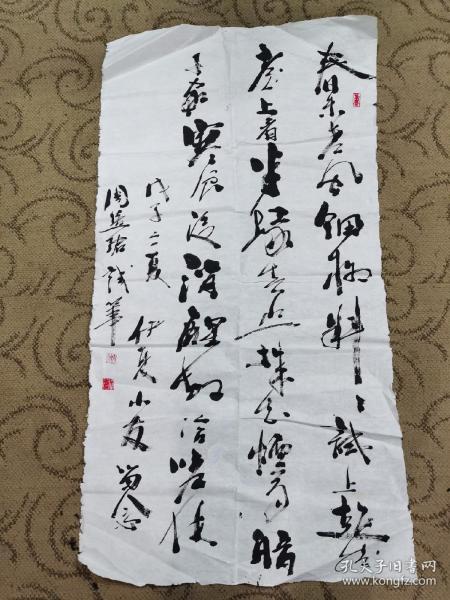 春未老風細柳斜斜試上超然
臺上看半壕春水一城花煙雨暗
千家寒食後酒醒却咨嗟
戊子之夏 伊夏小友留念
周 試筆
孔夫子旧书网
www.kongfz.com